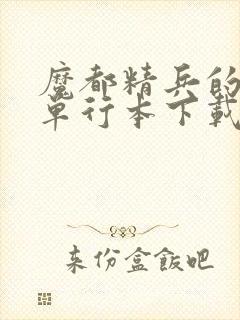 魔都精兵的
单行本下載
来份盒飯吧